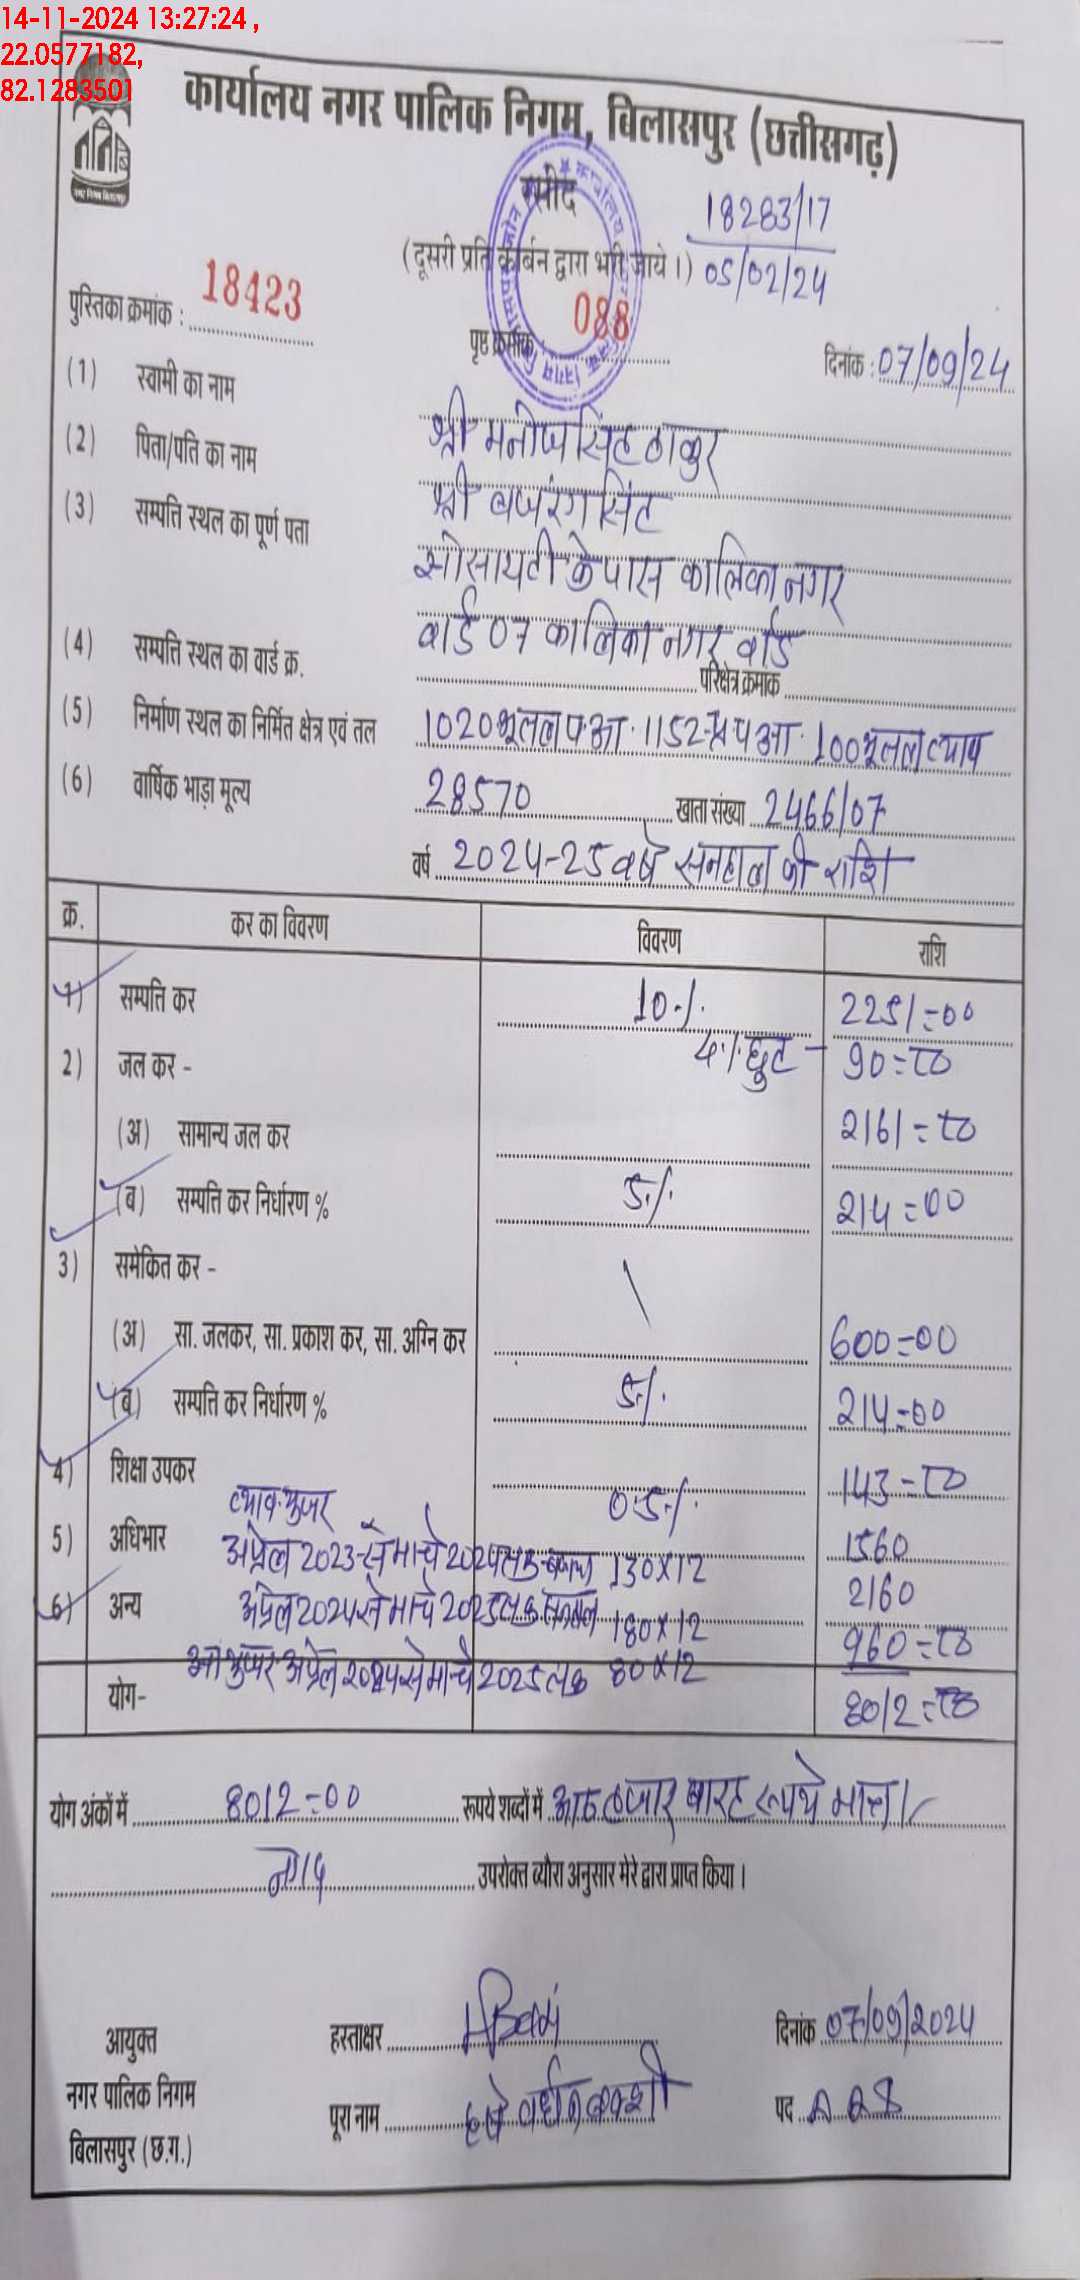 14-11-2024 13:27:24 ,
22.0577182,
82.1283501
कार्यालय नगर पालिक निगम, बिलासपुर (छत्तीसगढ़)
रसीद
18283/17
(दूसरी प्रति कार्बन द्वारा भरी जाये ।) 05/02/24
पुस्तिका क्रमांक : 18423
पृष्ठ क्रमांक 088
दिनांक : 07/09/24
(1) स्वामी का नाम श्री मनोज सिंह ठाकुर
(2) पिता/पति का नाम श्री बजरंग सिंह
(3) सम्पत्ति स्थल का पूर्ण पता सोसायटी के पास कालिका नगर
वार्ड 07 कालिका नगर वार्ड
(4) सम्पत्ति स्थल का वार्ड क्र. परिक्षेत्र क्रमांक
(5) निर्माण स्थल का निर्मित क्षेत्र एवं तल 1020 भूतल प आ. 1152 प आ. 100 भूतल व्याव
(6) वार्षिक भाड़ा मूल्य 28570 खाता संख्या 2466/07
वर्ष 2024-25 की राशि
क्र. कर का विवरण विवरण राशि
1) सम्पत्ति कर 10./. 2251=00
2) जल कर - 4./. छुट - 90=00
(अ) सामान्य जल कर 2161=00
(ब) सम्पत्ति कर निर्धारण % 5./. 214=00
3) समेकित कर -
(अ) सा. जलकर, सा. प्रकाश कर, सा. अग्नि कर 600=00
(ब) सम्पत्ति कर निर्धारण % 5./. 214=00
4) शिक्षा उपकर 0.5./. 143=00
व्याव. युजर
5) अधिभार अप्रेल 2023 से मार्च 2024 तक बकाया 130x12 1560
6) अन्य अप्रेल 2024 से मार्च 2025 तक 180x12 2160
आ युजर अप्रेल 2024 से मार्च 2025 तक 80x12 960=00
योग- 8012=00
योग अंकों में 8012=00 रूपये शब्दों में आठ हजार बारह रूपये मात्र।
नगद उपरोक्त ब्यौरा अनुसार मेरे द्वारा प्राप्त किया ।
आयुक्त हस्ताक्षर दिनांक 07/09/2024
नगर पालिक निगम पूरा नाम हर्ष वर्धन बक्शी पद ARS
बिलासपुर (छ.ग.)